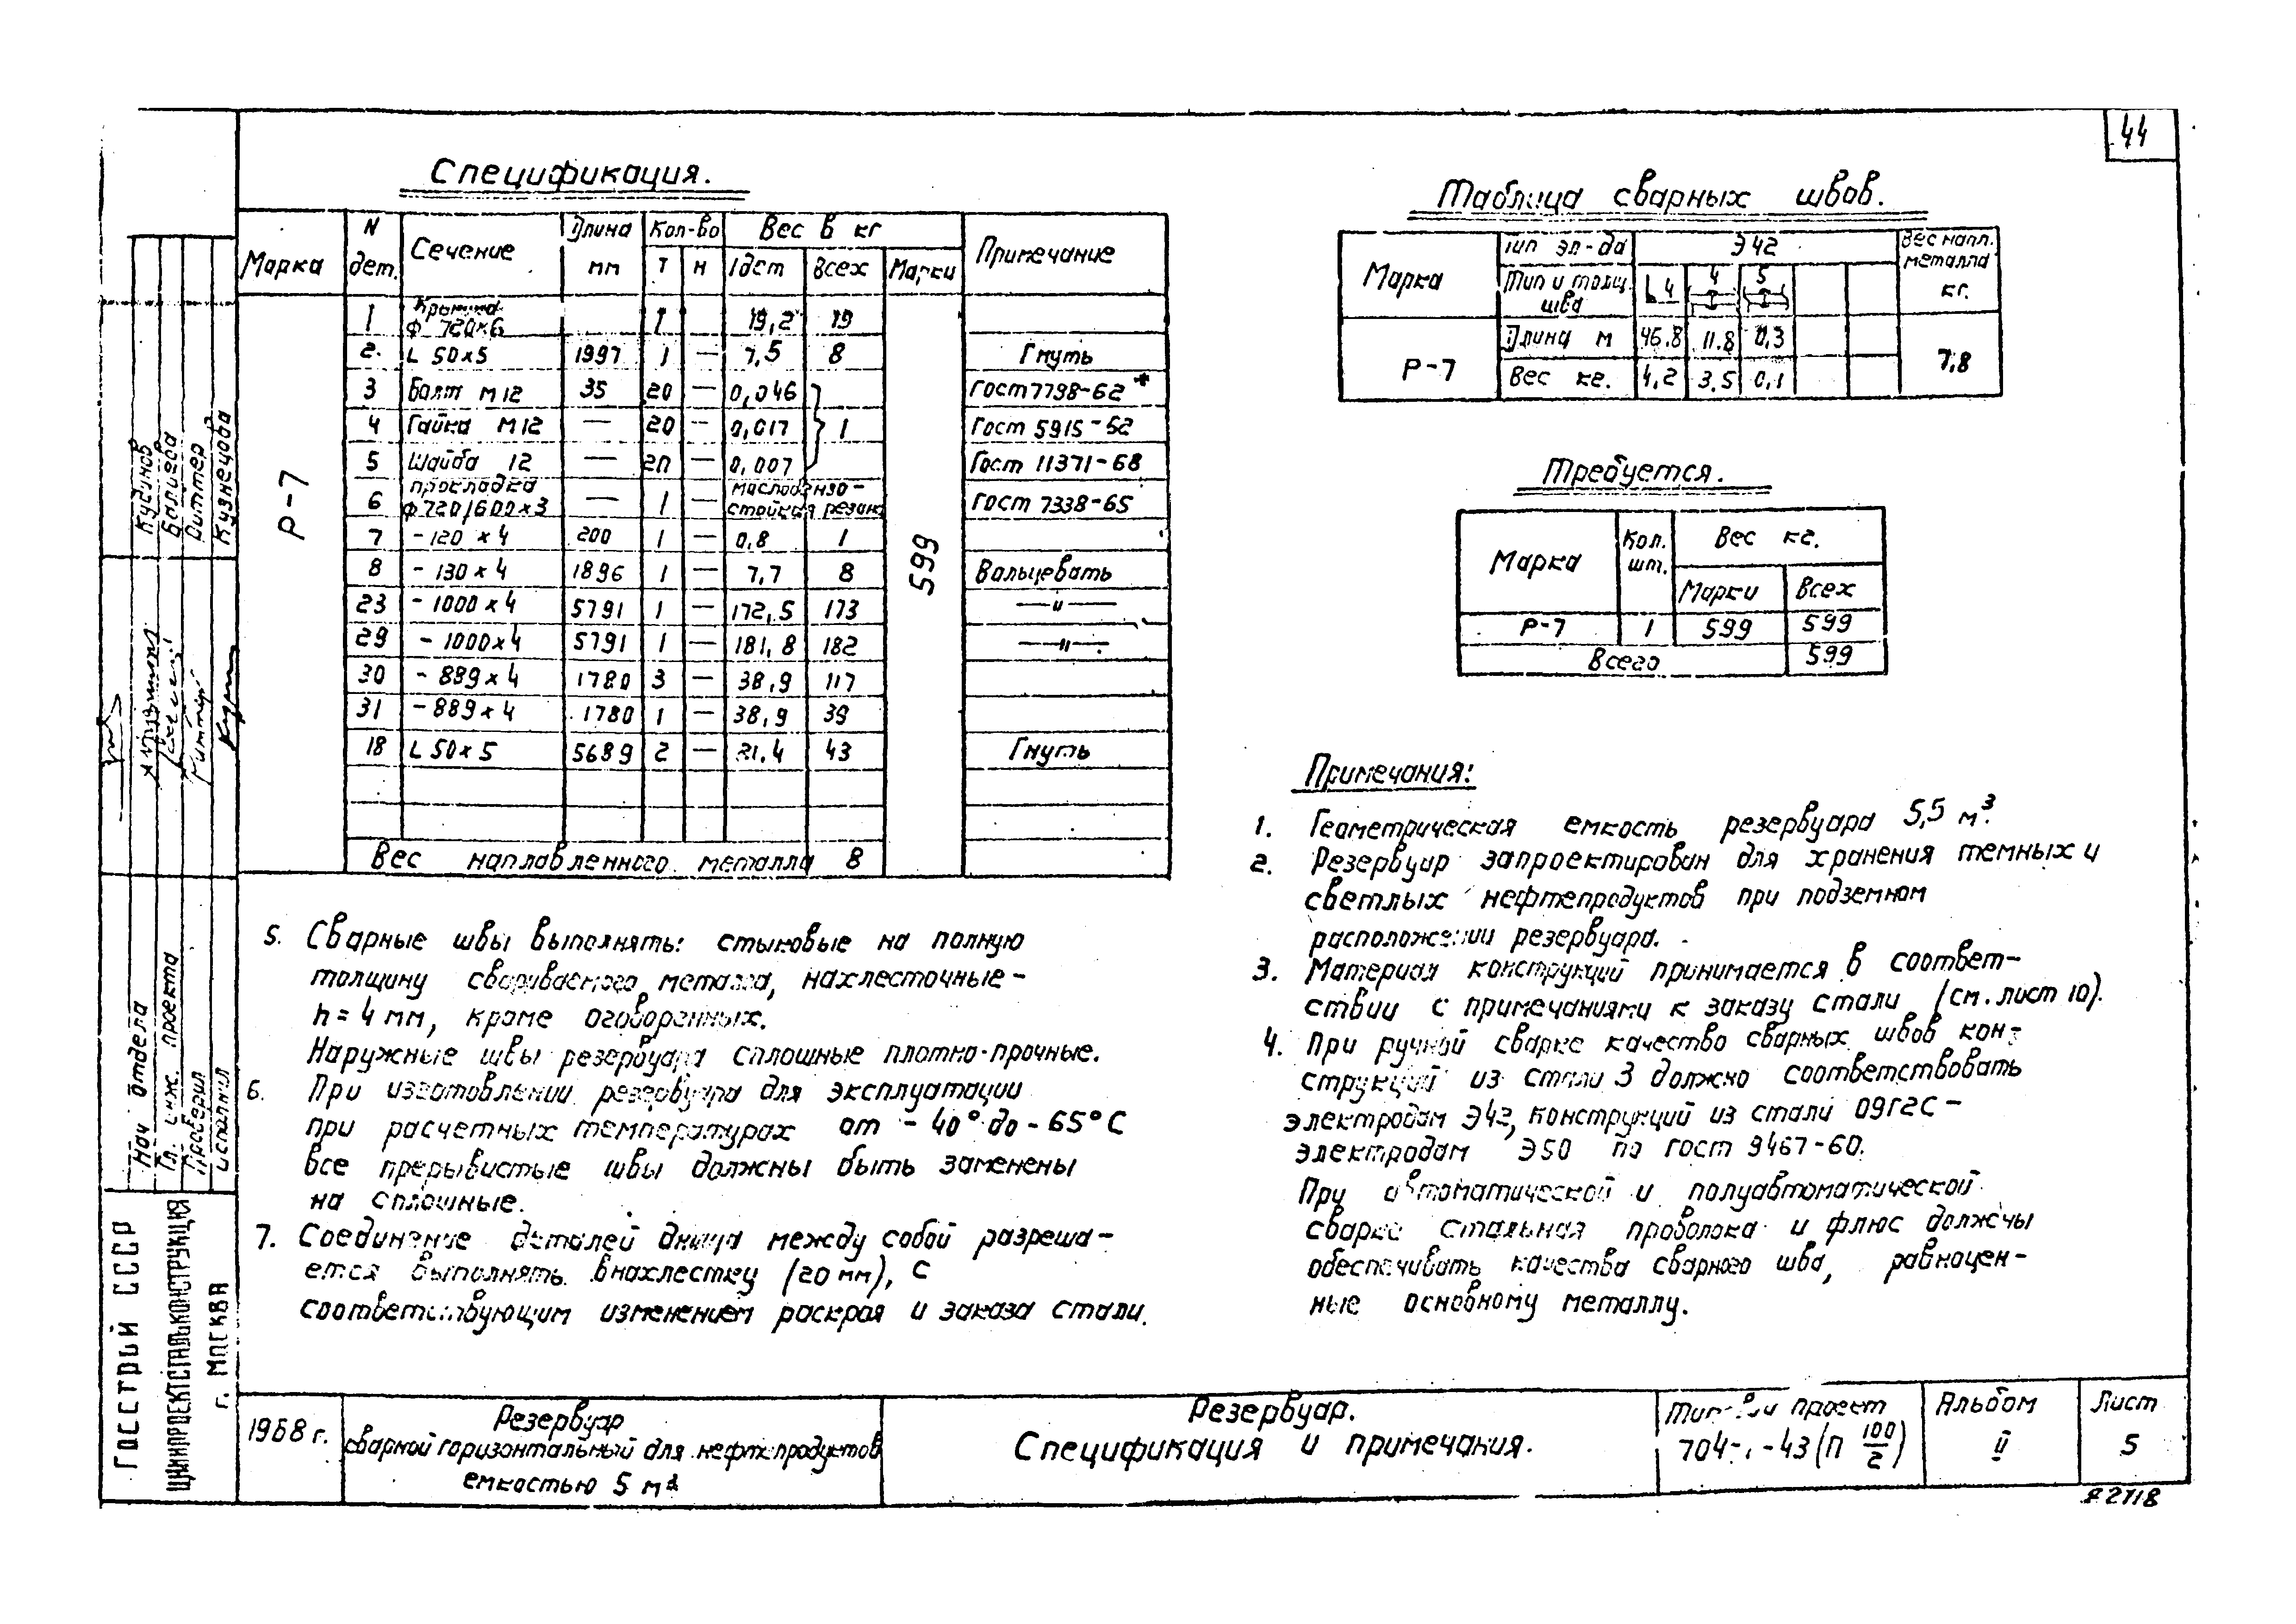 44
Спецификация.
Марка N дет. Сечение Длина мм Кол-во Т Н Вес в кг 1дет Всех Марки Примечание
Р-7 599
1 Крышка ф 720×6 1 19,2 19
2. L 50×5 1997 1 — 7,5 8 Гнуть
3 Болт М12 35 20 — 0,046 Гост 7798-62*
4 Гайка М12 — 20 — 0,017 1 Гост 5915-62
5 Шайба 12 — 20 — 0,007 Гост 11371-68
6 прокладка ф720/600×3 — 1 — маслобензостойкая резина Гост 7338-65
7 - 120 × 4 200 1 — 0,8 1
8 - 130 × 4 1896 1 — 7,7 8 Вальцевать
23 - 1000 × 4 5791 1 — 172,5 173 —"—
29 - 1000×4 5791 1 — 181,8 182 —"—
30 - 889×4 1780 3 — 38,9 117
31 - 889×4 1780 1 — 38,9 39
18 L 50×5 5689 2 — 21,4 43 Гнуть
Вес наплавленного металла 8
Таблица сварных швов.
Марка Тип эл-да Э42 Вес напл. металла кг.
Тип и толщ. шва 4 4 5
Р-7 Длина м 46.8 11.8 0,3 7,8
Вес кг. 4,2 3.5 0,1
Требуется.
Марка Кол. шт. Вес кг.
Марки Всех
Р-7 1 599 599
Всего 599
Примечания:
1. Геометрическая емкость резервуара 5,5 м³.
2. Резервуар запроектирован для хранения темных и
светлых нефтепродуктов при подземном
расположении резервуара.
3. Материал конструкций принимается в соответ-
ствии с примечаниями к заказу стали (см. лист 10).
4. При ручной сварке качество сварных швов кон-
струкций из стали 3 должно соответствовать
электродам Э42, конструкций из стали 09Г2С-
электродам Э50 по гост 9467-60.
При автоматической и полуавтоматической
сварке стальная проволока и флюс должны
обеспечивать качества сварного шва, равноцен-
ные основному металлу.
5. Сварные швы выполнять: стыковые на полную
толщину свариваемого металла, нахлесточные-
h = 4 мм, кроме оговоренных.
Наружные швы резервуара сплошные плотно-прочные.
6. При изготовлении резервуара для эксплуатации
при расчетных температурах от - 40° до - 65° С
все прерывистые швы должны быть заменены
на сплошные.
7. Соединение деталей днища между собой разреша-
ется выполнять внахлестку (20 мм), с
соответствующим изменением раскроя и заказа стали.
Нач отдела Кудинов
Гл. инж. проекта
Проверил Риттер
исполнил Кузнецова
Госстрой СССР
ЦНИИПРОЕКТСТАЛЬКОНСТРУКЦИЯ
г. Москва
1968 г.
Резервуар
сварной горизонтальный для нефтепродуктов
емкостью 5 м³
Резервуар.
Спецификация и примечания.
Типовой проект
704-1-43 (П 100/2)
Альбом
II
Лист
5